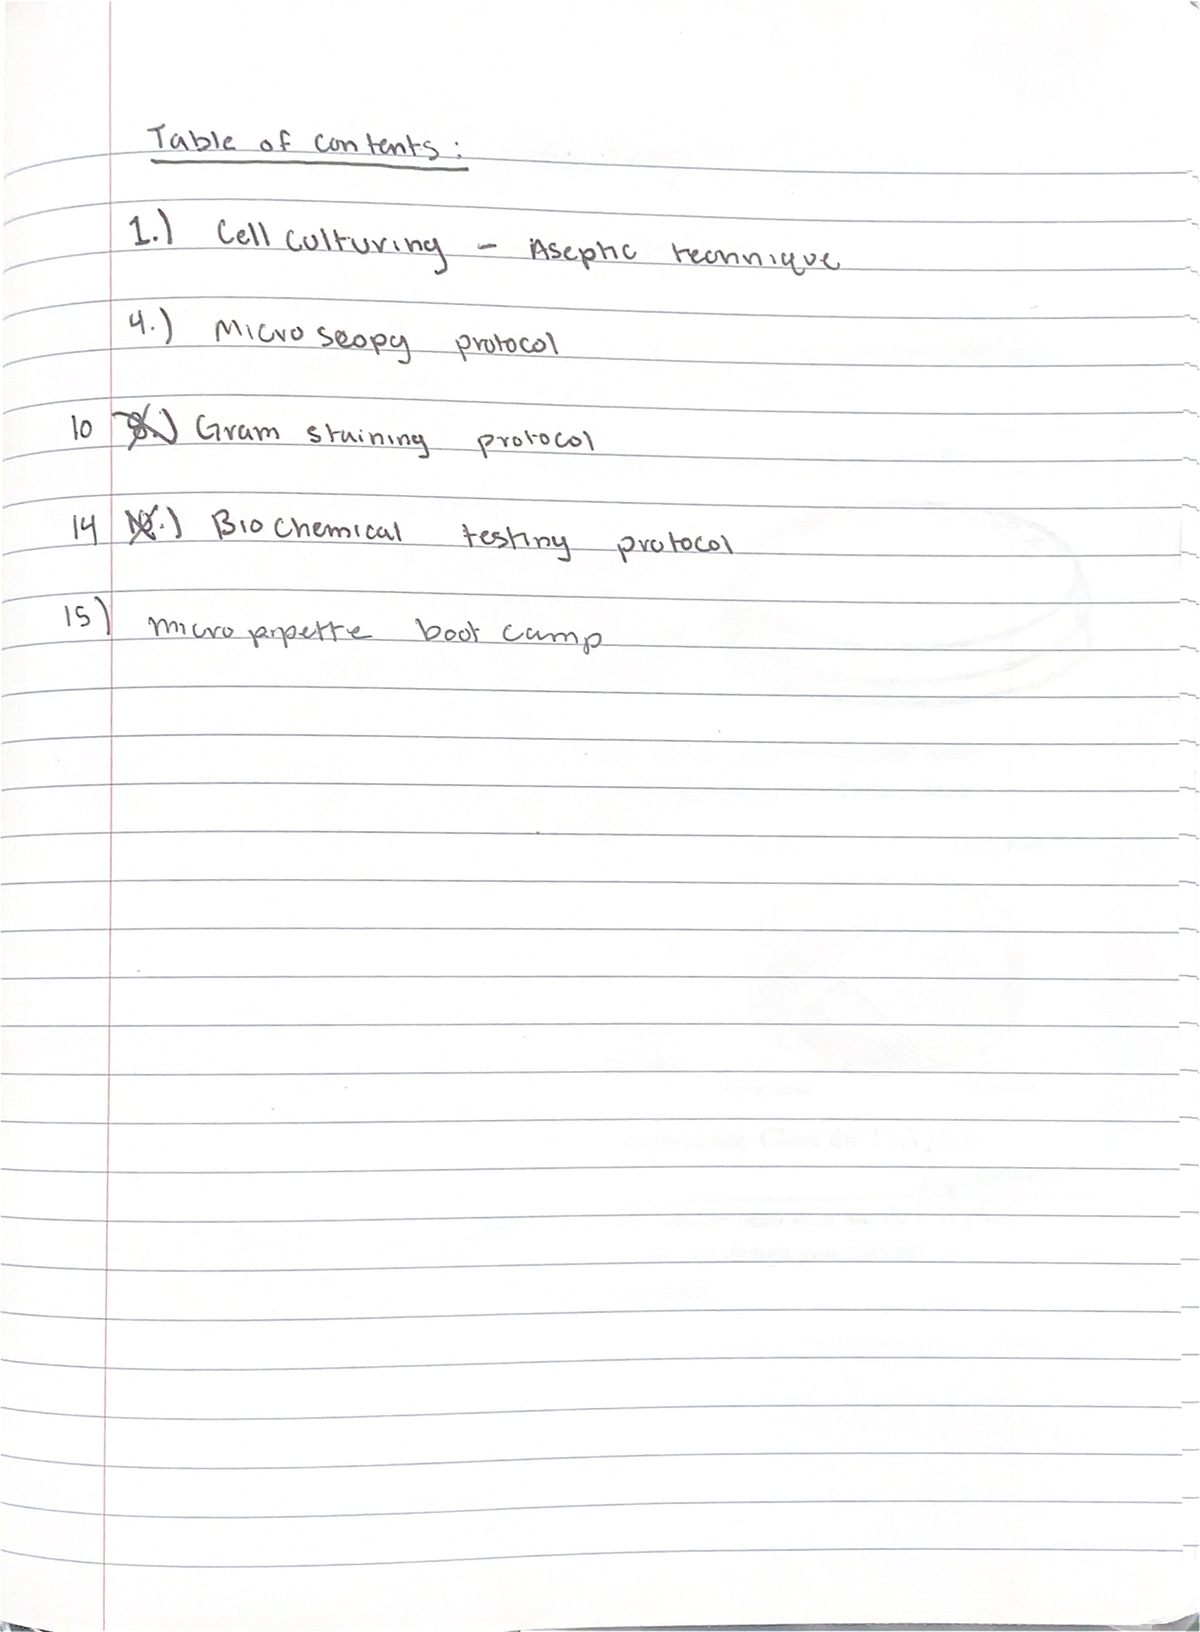 Table of contents:
1.) Cell culturing - Aseptic technique
4.) Microscopy protocol
10 Gram staining protocol
14 Biochemical testing protocol
15) micropipette boot camp
Close the TSA